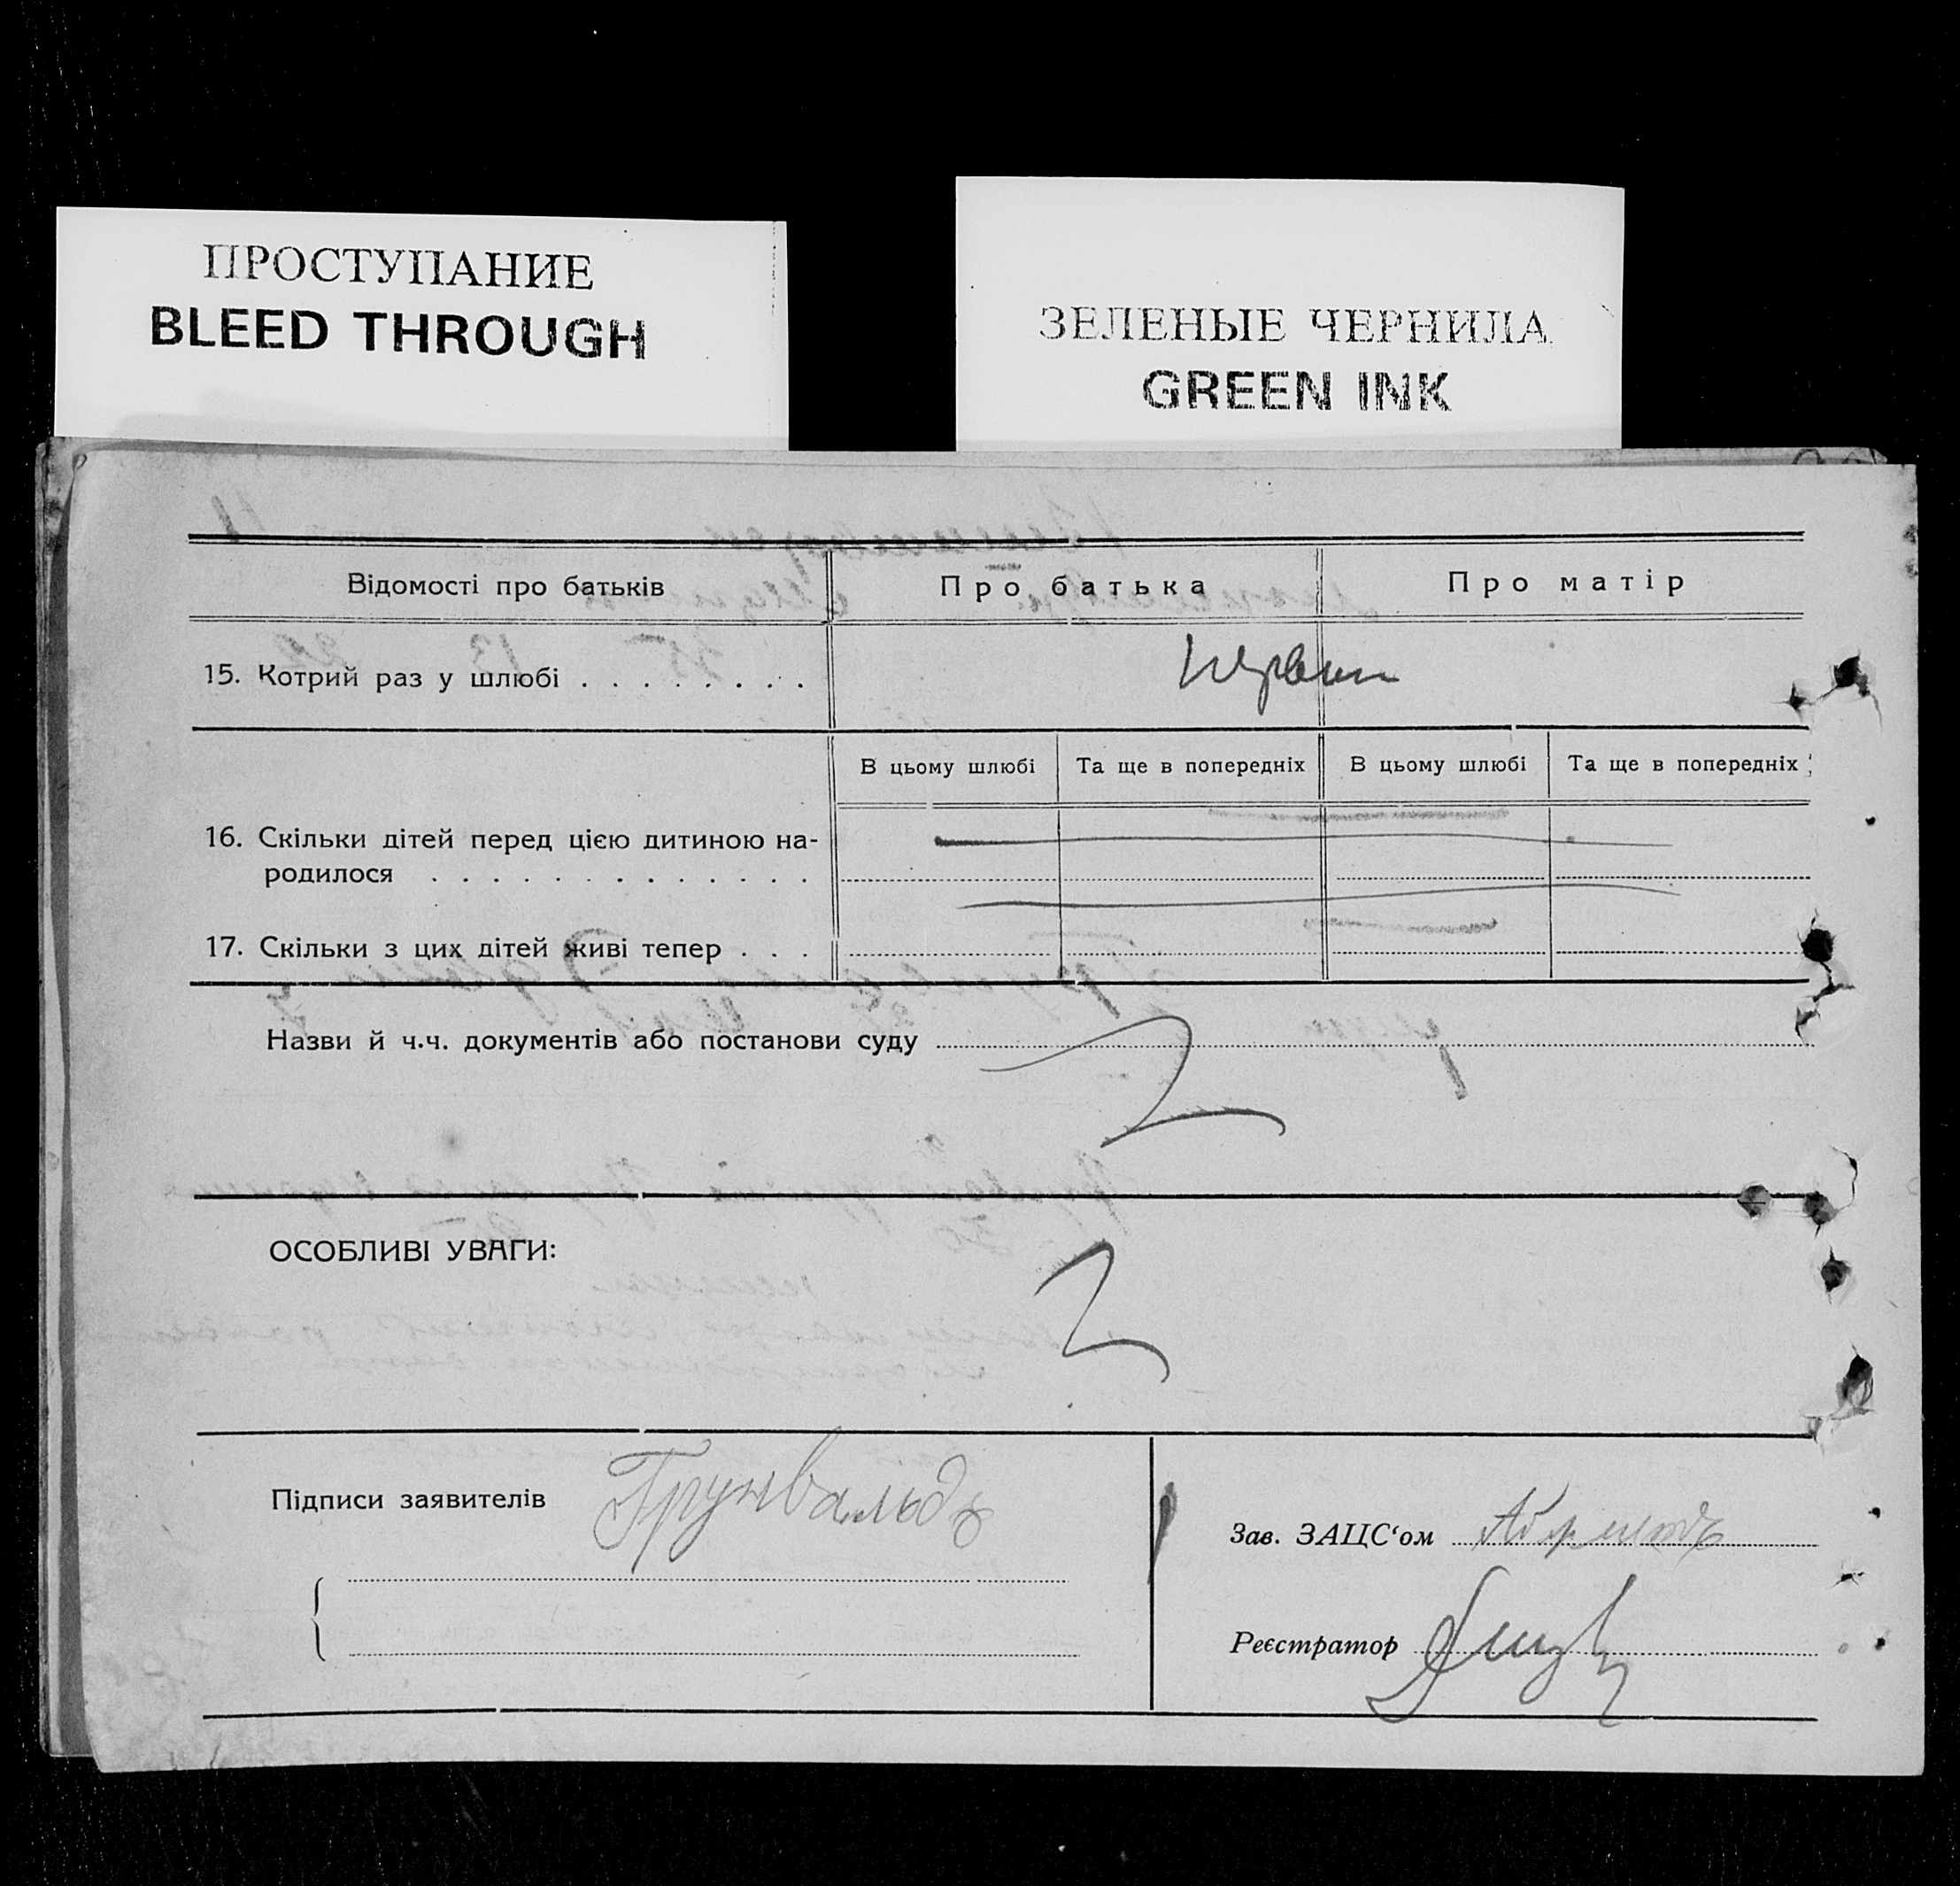 ПРОСТУПАНИЕ
BLEED THROUGH
ЗЕЛЕНЫЕ ЧЕРНИЛА
GREEN INK
Відомості про батьків Про батька Про матір
15. Котрий раз у шлюбі . . . . . . . .
В цьому шлюбі Та ще в попередніх В цьому шлюбі Та ще в попередніх
16. Скільки дітей перед цією дитиною на-
родилося . . . . . . . . . . . . .
17. Скільки з цих дітей живі тепер . . .
Назви й ч.ч. документів або постанови суду
ОСОБЛИВІ УВАГИ:
Підписи заявителів Грунвальдъ
Зав. ЗАЦС‘ом
Реєстратор